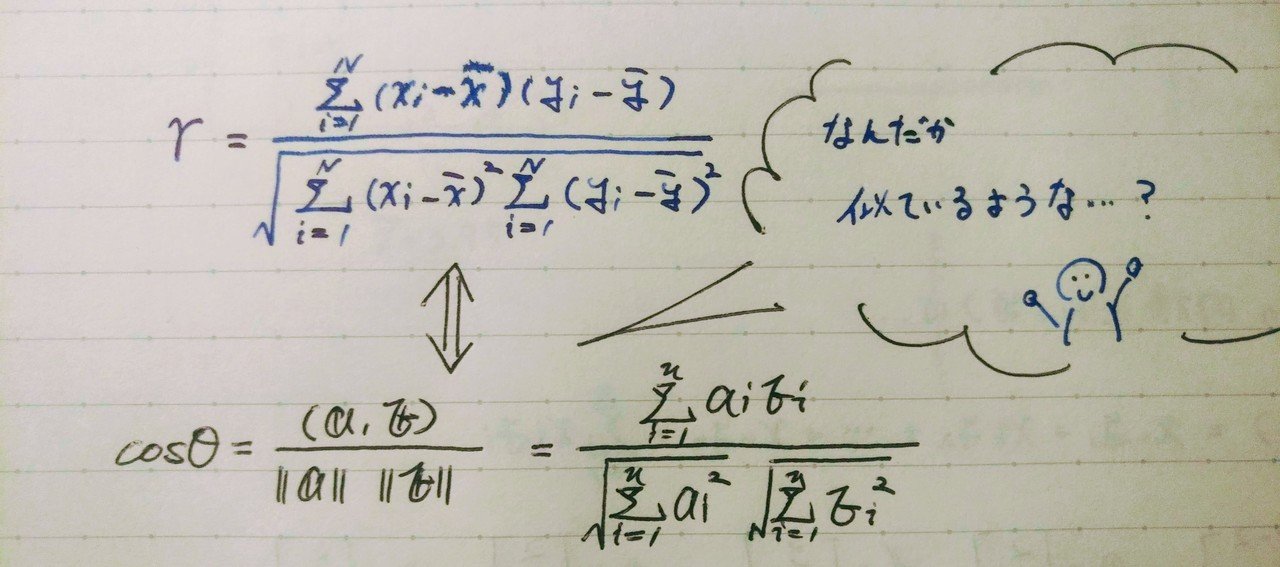 r = \frac{\sum_{i=1}^{N} (x_i - \bar{x})(y_i - \bar{y})}{\sqrt{\sum_{i=1}^{N} (x_i - \bar{x})^2 \sum_{i=1}^{N} (y_i - \bar{y})^2}}
なんだか
似ているような…?
⇕
cosθ = \frac{(𝕒, 𝕓)}{‖𝕒‖ ‖𝕓‖} = \frac{\sum_{i=1}^{n} a_i b_i}{\sqrt{\sum_{i=1}^{n} a_i^2} \sqrt{\sum_{i=1}^{n} b_i^2}}